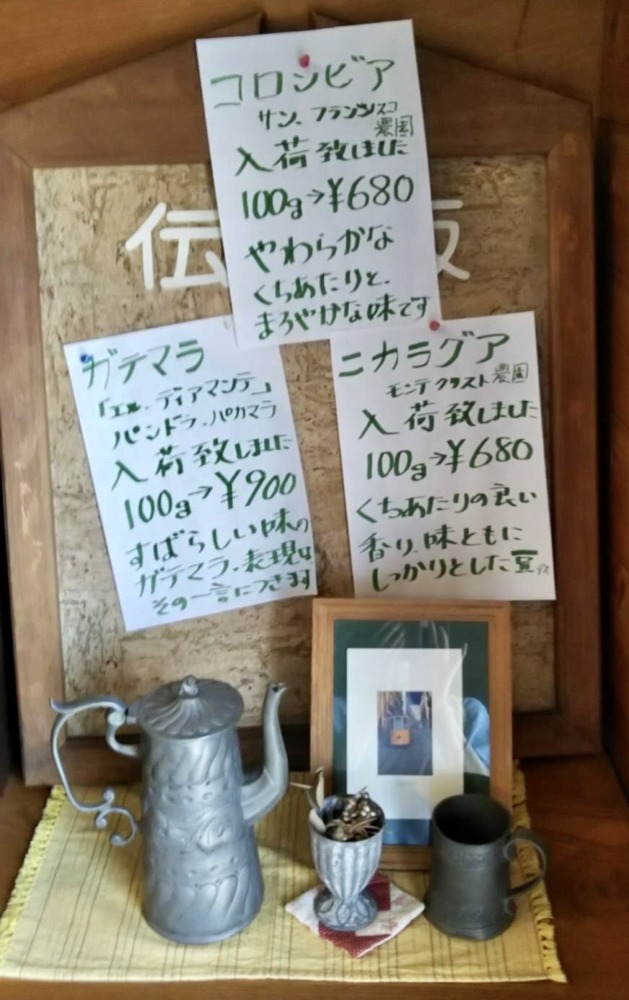 コロンビア
サン フランシスコ
農園
入荷致しました
100g→¥680
やわらかな
くちあたりと、
まろやかな味です
伝
板
ガテマラ
「エル・ディアマンテ」
パンドラ・パカマラ
入荷致しました
100g→¥900
すばらしい味の
ガテマラ・表現は
その一言につきます
ニカラグア
モンテクリスト農園
入荷致しました
100g→¥680
くちあたりの良い
香り、味ともに
しっかりとした豆です